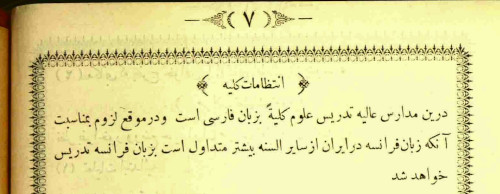 ﴿ ٧ ﴾
﴿ انتظامات کلیه ﴾
درین مدارس عالیه تدریس علوم کلیةً بزبان فارسی است ودرموقع لزوم بمناسبت
آنکه زبان فرانسه درایران از سایر السنه بیشتر متداول است بزبان فرانسه تدریس
خواهد شد